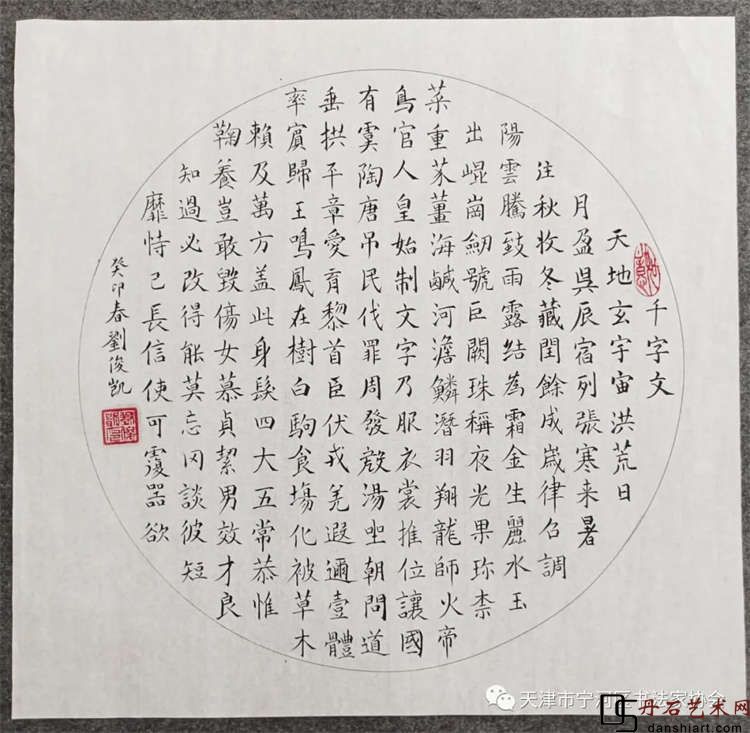 千字文
天地玄宇宙洪荒日
月盈昃辰宿列張寒来暑
往秋收冬藏閏餘成歲律吕調
陽雲騰致雨露結為霜金生麗水玉
出崐崗劒號巨闕珠稱夜光果珎柰
菜重芥薑海鹹河澹鱗潛羽翔龍師火帝
鳥官人皇始制文字乃服衣裳推位讓國
有虞陶唐吊民伐罪周發殷湯坐朝問道
垂拱平章愛育黎首臣伏戎羌遐邇壹體
率賓歸王鳴鳳在樹白駒食場化被草木
賴及萬方盖此身髮四大五常恭惟
鞠養豈敢毀傷女慕貞絜男效才良
知過必改得能莫忘罔談彼短
靡恃己長信使可覆器欲
癸卯春劉俊凱
天津市宁河区书法家协会
丹石艺术网
danshiart.com